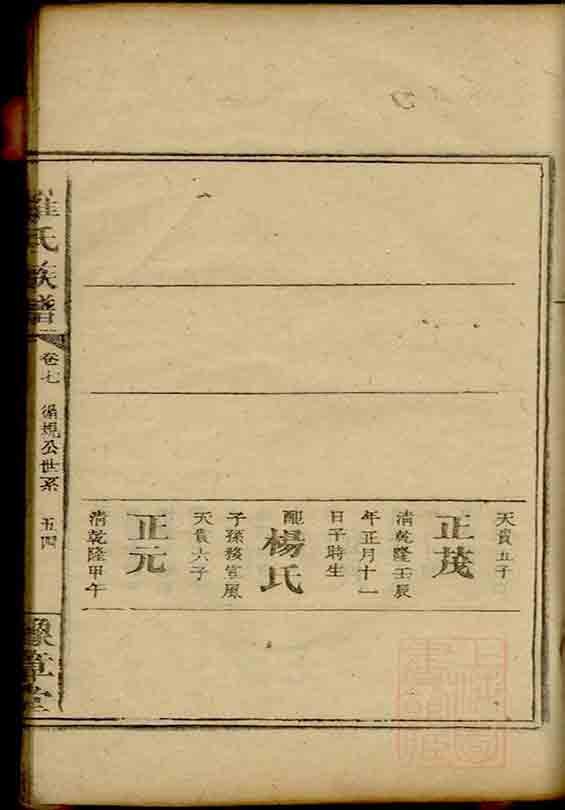 天貴五子
正茂
清乾隆壬辰
年正月十一
日子時生
配
楊氏
子孫移官風
天貴六子
正元
清乾隆甲午
羅氏族譜
卷七
循規公世系
五四
豫章堂